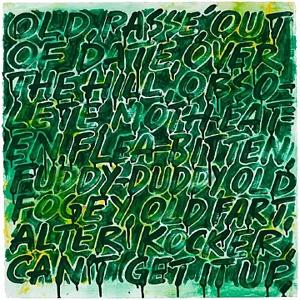 OLD, PASSÉ, OUT
OF DATE, OVER
THE HILL, OBSO-
LETE, MOTH-EAT-
EN, FLEA-BITTEN,
FUDDY-DUDDY, OLD
FOGEY, OLD FART,
ALTER KOCKER,
CAN'T GET IT UP.